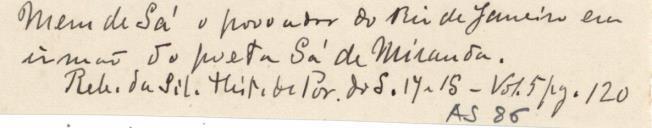 Mem de Sá o povoador do Rio de Janeiro era
irmão do poeta Sá de Miranda.
Reb. da Sil. Hist. de Por. do S. 17 e 18 - Vol. 5 pg. 120
AS 86